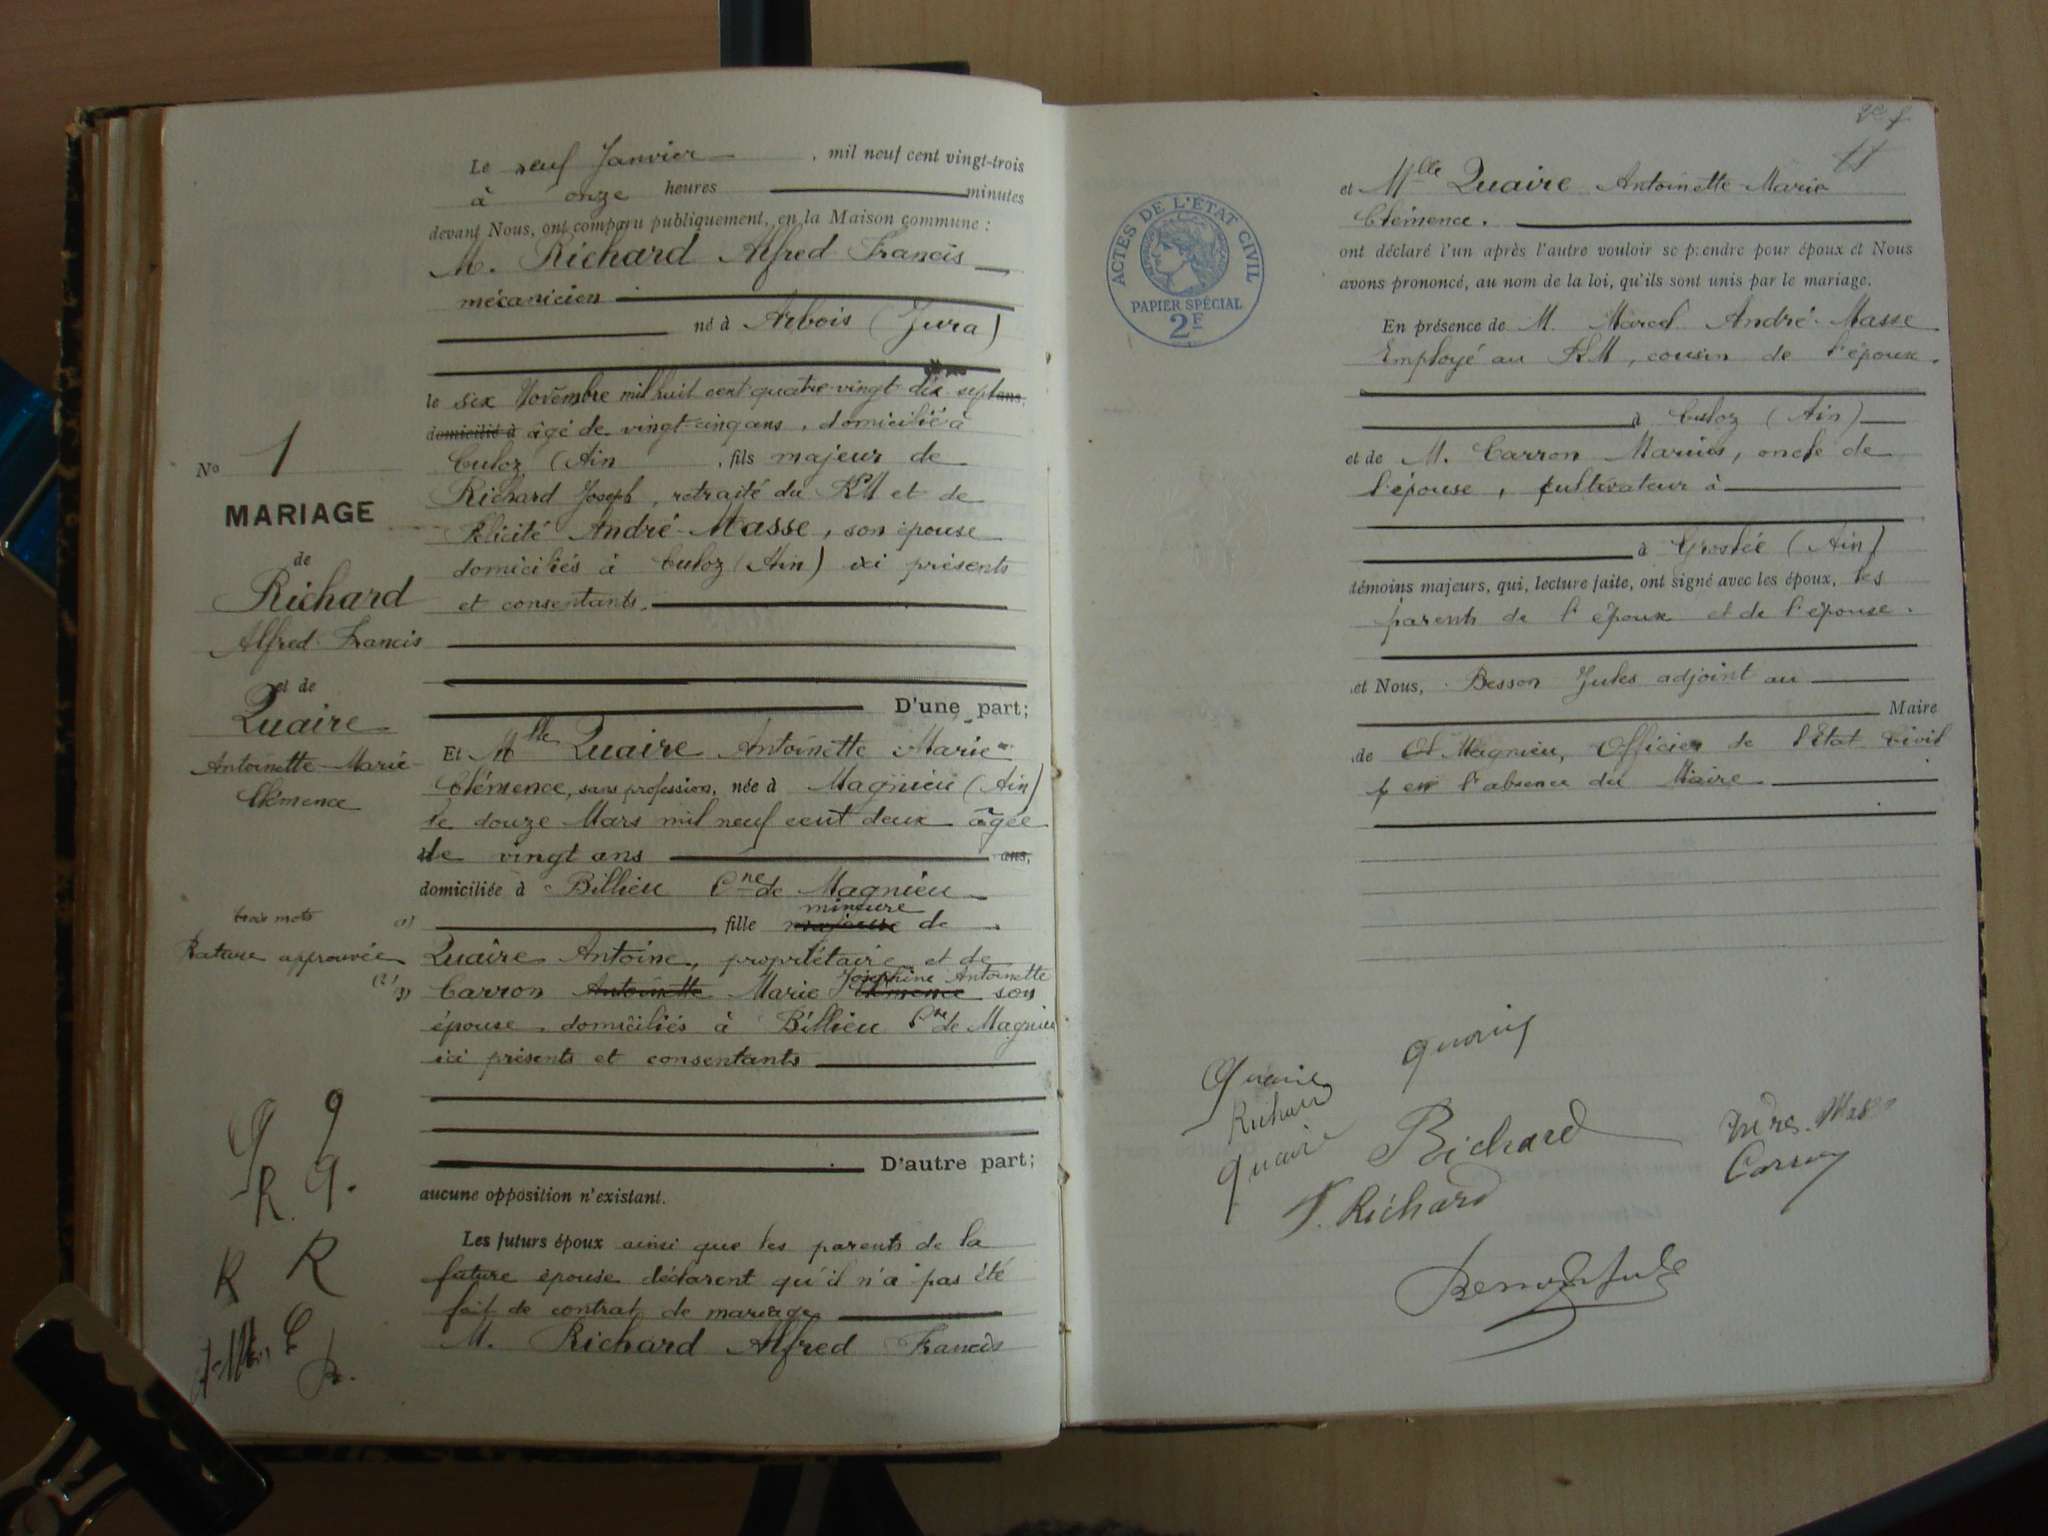 Le neuf Janvier, mil neuf cent vingt-trois
à onze heures minutes
devant Nous, ont comparu publiquement, en la Maison commune :
M. Richard Alfred Francis
mécanicien
né à Arbois (Jura)
le six Novembre mil huit cent quatre-vingt dix-sept ans,
domicilié à âgé de vingt-cinq ans, domicilié à
Culoz (Ain, fils majeur de
Richard Joseph, retraité du PLM et de
Félicité André-Masse, son épouse
domiciliés à Culoz (Ain) ici présents
et consentants.
D'une part;
Et Mlle Quaire Antoinette Marie
Clémence, sans profession, née à Magnieu (Ain)
le douze Mars mil neuf cent deux âgée
de vingt ans ans,
domiciliée à Billieu Cne de Magnieu
mineure
fille majeure de
Quaire Antoine, propriétaire et de
Josephine Antoinette
Carron Antoinette Marie Clémence son
épouse domiciliés à Billieu Cne de Magnieu
ici présents et consentants
D'autre part;
aucune opposition n'existant.
Les futurs époux ainsi que les parents de la
future épouse déclarent qu'il n'a pas été
fait de contrat de mariage
M. Richard Alfred Francis
No 1
MARIAGE
de
Richard
Alfred Francis
et de
Quaire
Antoinette-Marie-
Clémence
trois mots
Rature approuvée
(1)
(2) (3)
Q Q
R. Q.
R R
ACTES DE L'ÉTAT CIVIL
PAPIER SPÉCIAL
2F
11
et Mlle Quaire Antoinette Marie
Clémence.
ont déclaré l'un après l'autre vouloir se prendre pour époux et Nous
avons prononcé, au nom de la loi, qu'ils sont unis par le mariage.
En présence de M. Marcel André-Masse
Employé au PLM, cousin de l'époux.
à Culoz (Ain)
et de M. Carron Marius, oncle de
l'épouse, cultivateur à
à Groslée (Ain)
témoins majeurs, qui, lecture faite, ont signé avec les époux, les
parents de l'époux et de l'épouse.
et Nous, Besson Jules adjoint au
Maire
de Magnieu, Officier de l'Etat Civil
en l'absence du Maire
Quaire
Richard
Quaire
Richard
Carron
F. Richard
Besson Jules